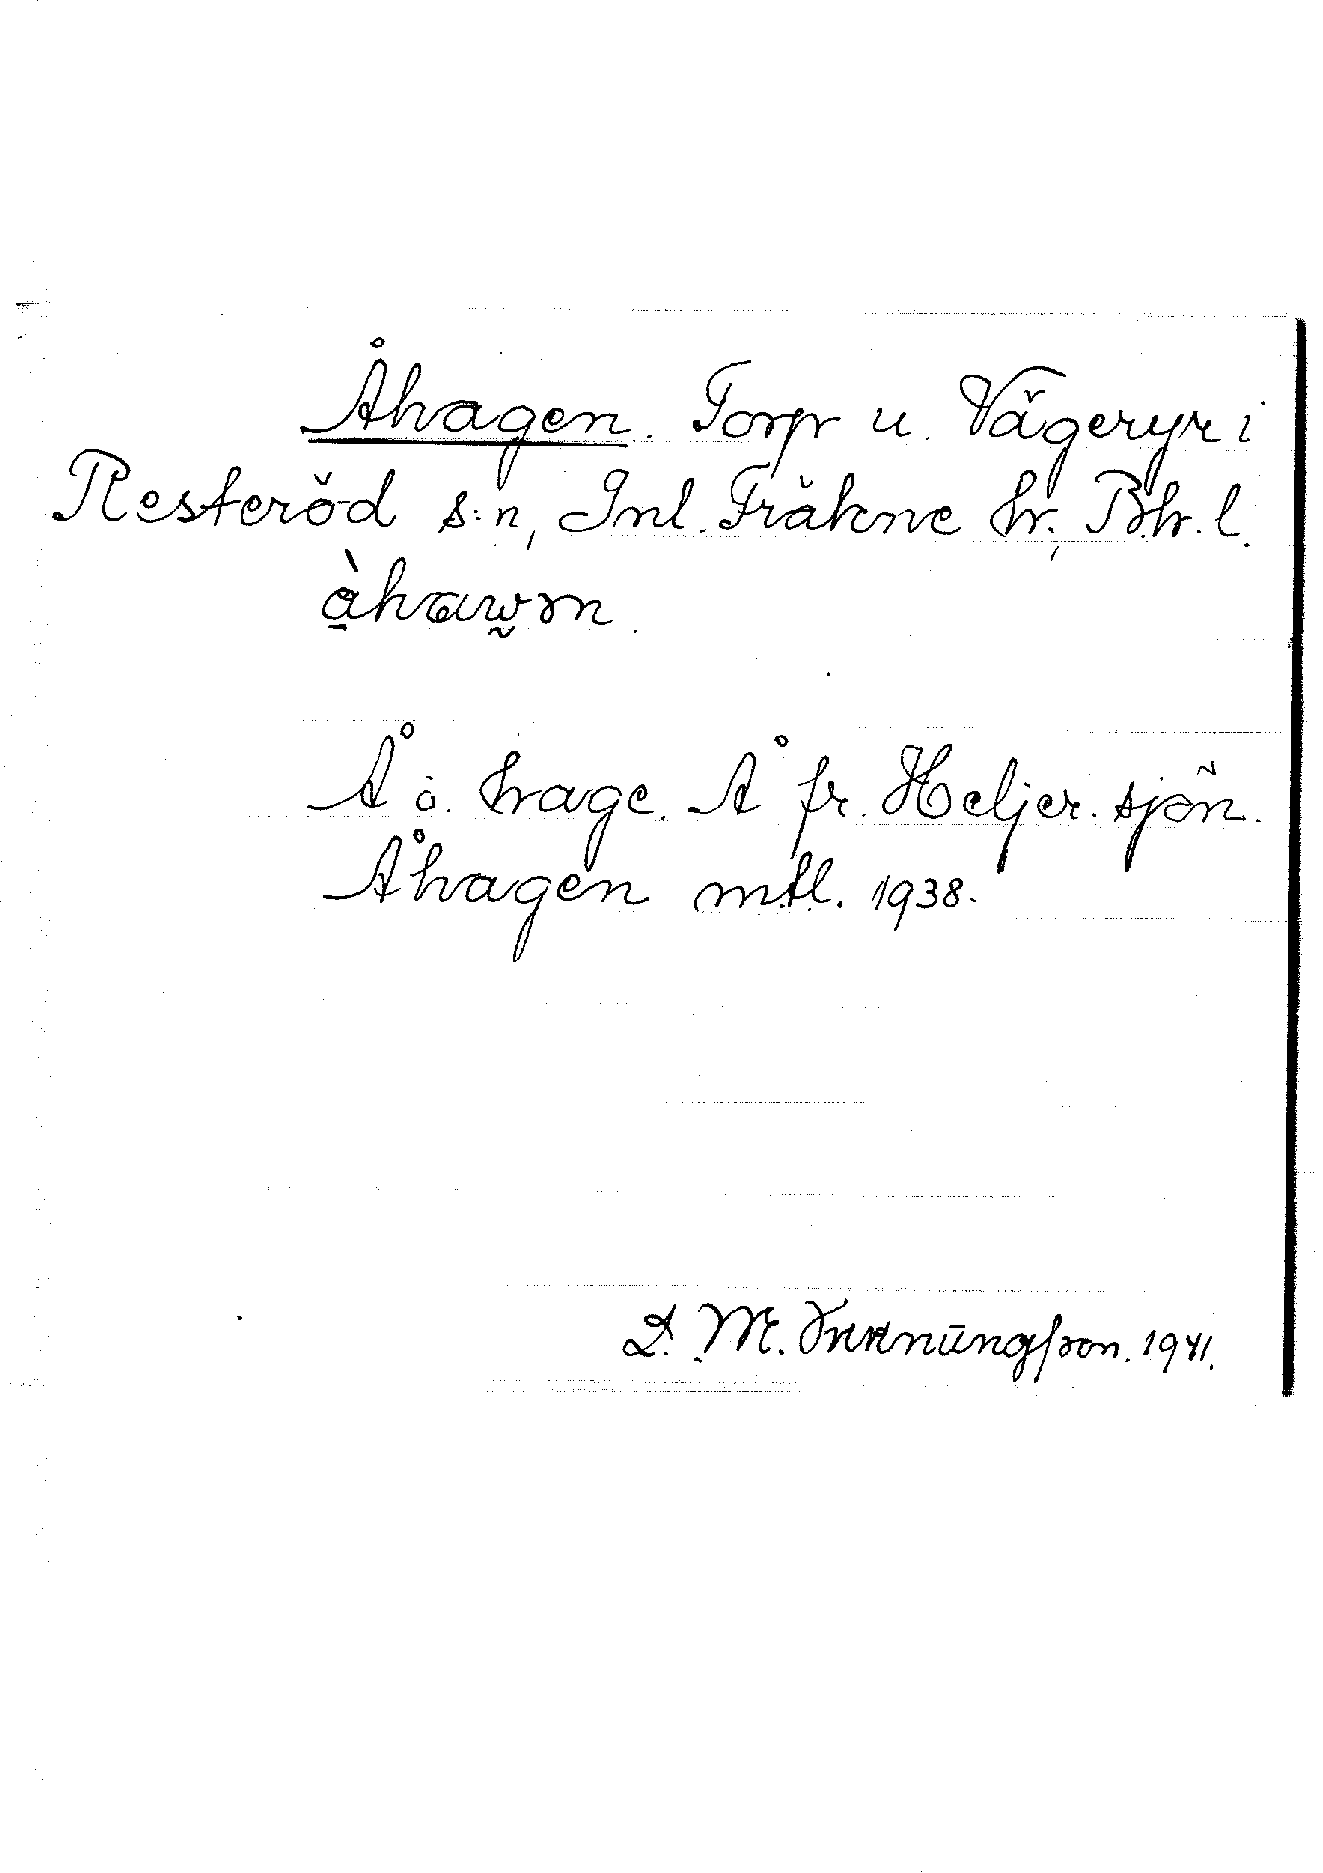 Åhagen. Torp u. Vägeryr i
Resteröd s:n, Inl. Fräkne hr., Bh. l.
Å o. hage. Å fr. Heljer. sjön.
Åhagen mtl. 1938.
D. M. 1941.